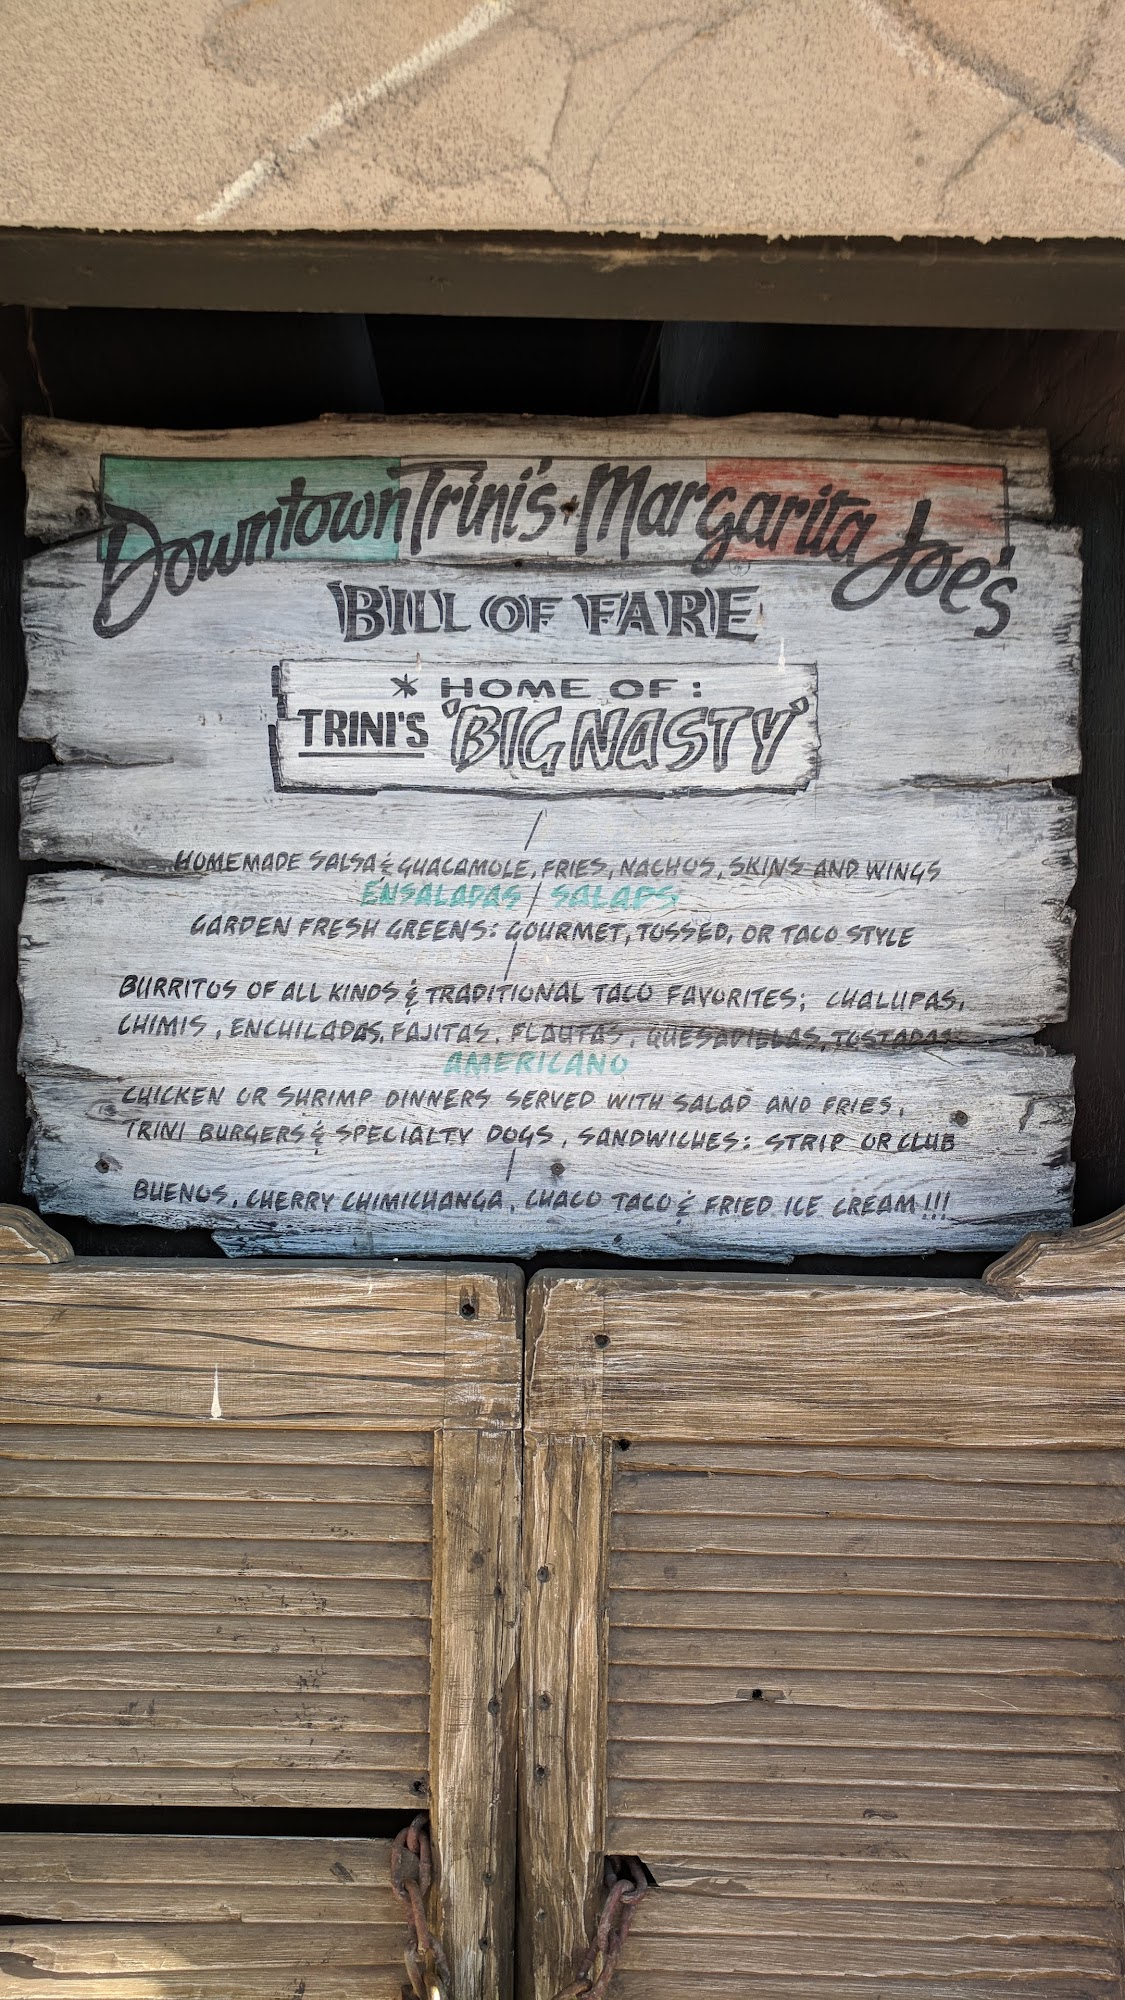 Downtown Trini's Margarita Joe's
BILL OF FARE
* HOME OF:
TRINI'S 'BIG NASTY'
HOMEMADE SALSA & GUACAMOLE, FRIES, NACHOS, SKINS AND WINGS
ENSALADAS / SALADS
GARDEN FRESH GREENS: GOURMET, TOSSED, OR TACO STYLE
BURRITOS OF ALL KINDS & TRADITIONAL TACO FAVORITES; CHALUPAS,
CHIMIS, ENCHILADAS, FAJITAS, FLAUTAS, QUESADILLAS, TOSTADAS
AMERICANO
CHICKEN OR SHRIMP DINNERS SERVED WITH SALAD AND FRIES,
TRINI BURGERS & SPECIALTY DOGS, SANDWICHES: STRIP OR CLUB
BUENOS, CHERRY CHIMICHANGA, CHACO TACO & FRIED ICE CREAM!!!